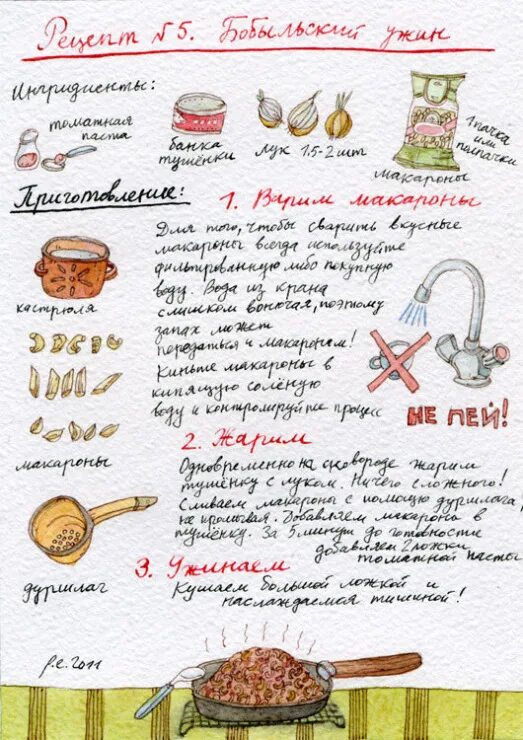 Рецепт №5. Бобыльский ужин
Ингридиенты:
томатная
паста
банка
тушёнки
лук 1.5-2 шт
1 пачка
или
полпачки
макароны
Приготовление:
1. Варим макароны
Для того, чтобы сварить вкусные
макароны всегда используйте
фильтрованную либо покупную
воду. Вода из крана
слишком вонючая, поэтому
запах может
передаться и макаронам!
Киньте макароны в
кипящую солёную
воду и контролируйте процесс
кастрюля
макароны
дуршлаг
НЕ ПЕЙ!
2. Жарим
Одновременно на сковороде жарим
тушёнку с луком. Ничего сложного!
Сливаем макароны с помощью дуршлага,
не промывая. Добавляем макароны в
тушёнку. За 5 минут до готовности
добавляем 2 ложки
томатной пасты
3. Ужинаем
Кушаем большой ложкой и
наслаждаемся тишиной!
2011